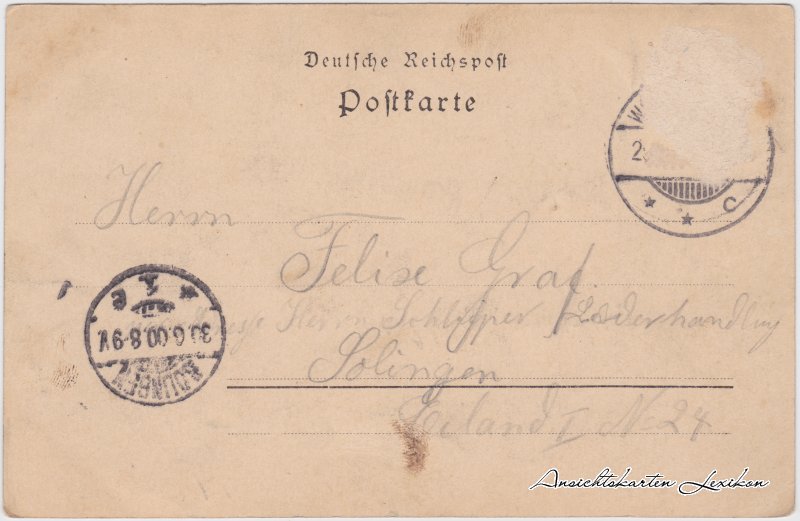 Deutsche Reichspost
Postkarte
W
2
C
Herrn
Felise Graf.
Herrn Schlipper / Lederhandling
Solingen
Eiland I No 24
30.6.00.8-9V.
SOLINGEN
Ansichtskarten Lexikon